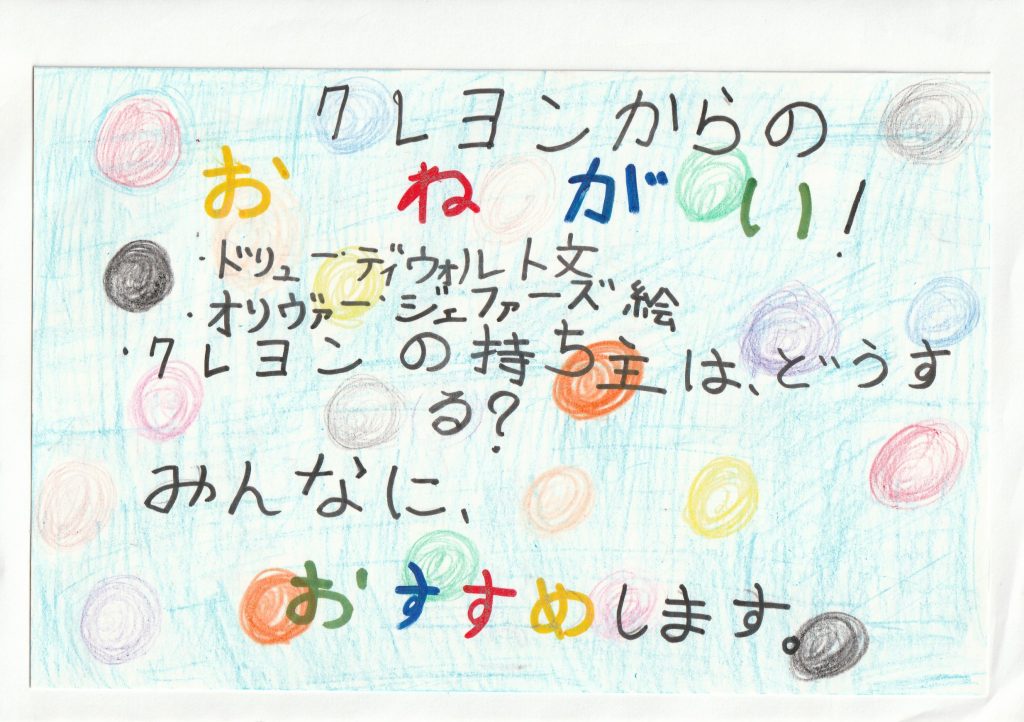 クレヨンからの
おねがい!
・ドリュー・ディウォルト文
・オリヴァー・ジェファーズ絵
・クレヨンの持ち主は、どうす
る?
みんなに、
おすすめします。